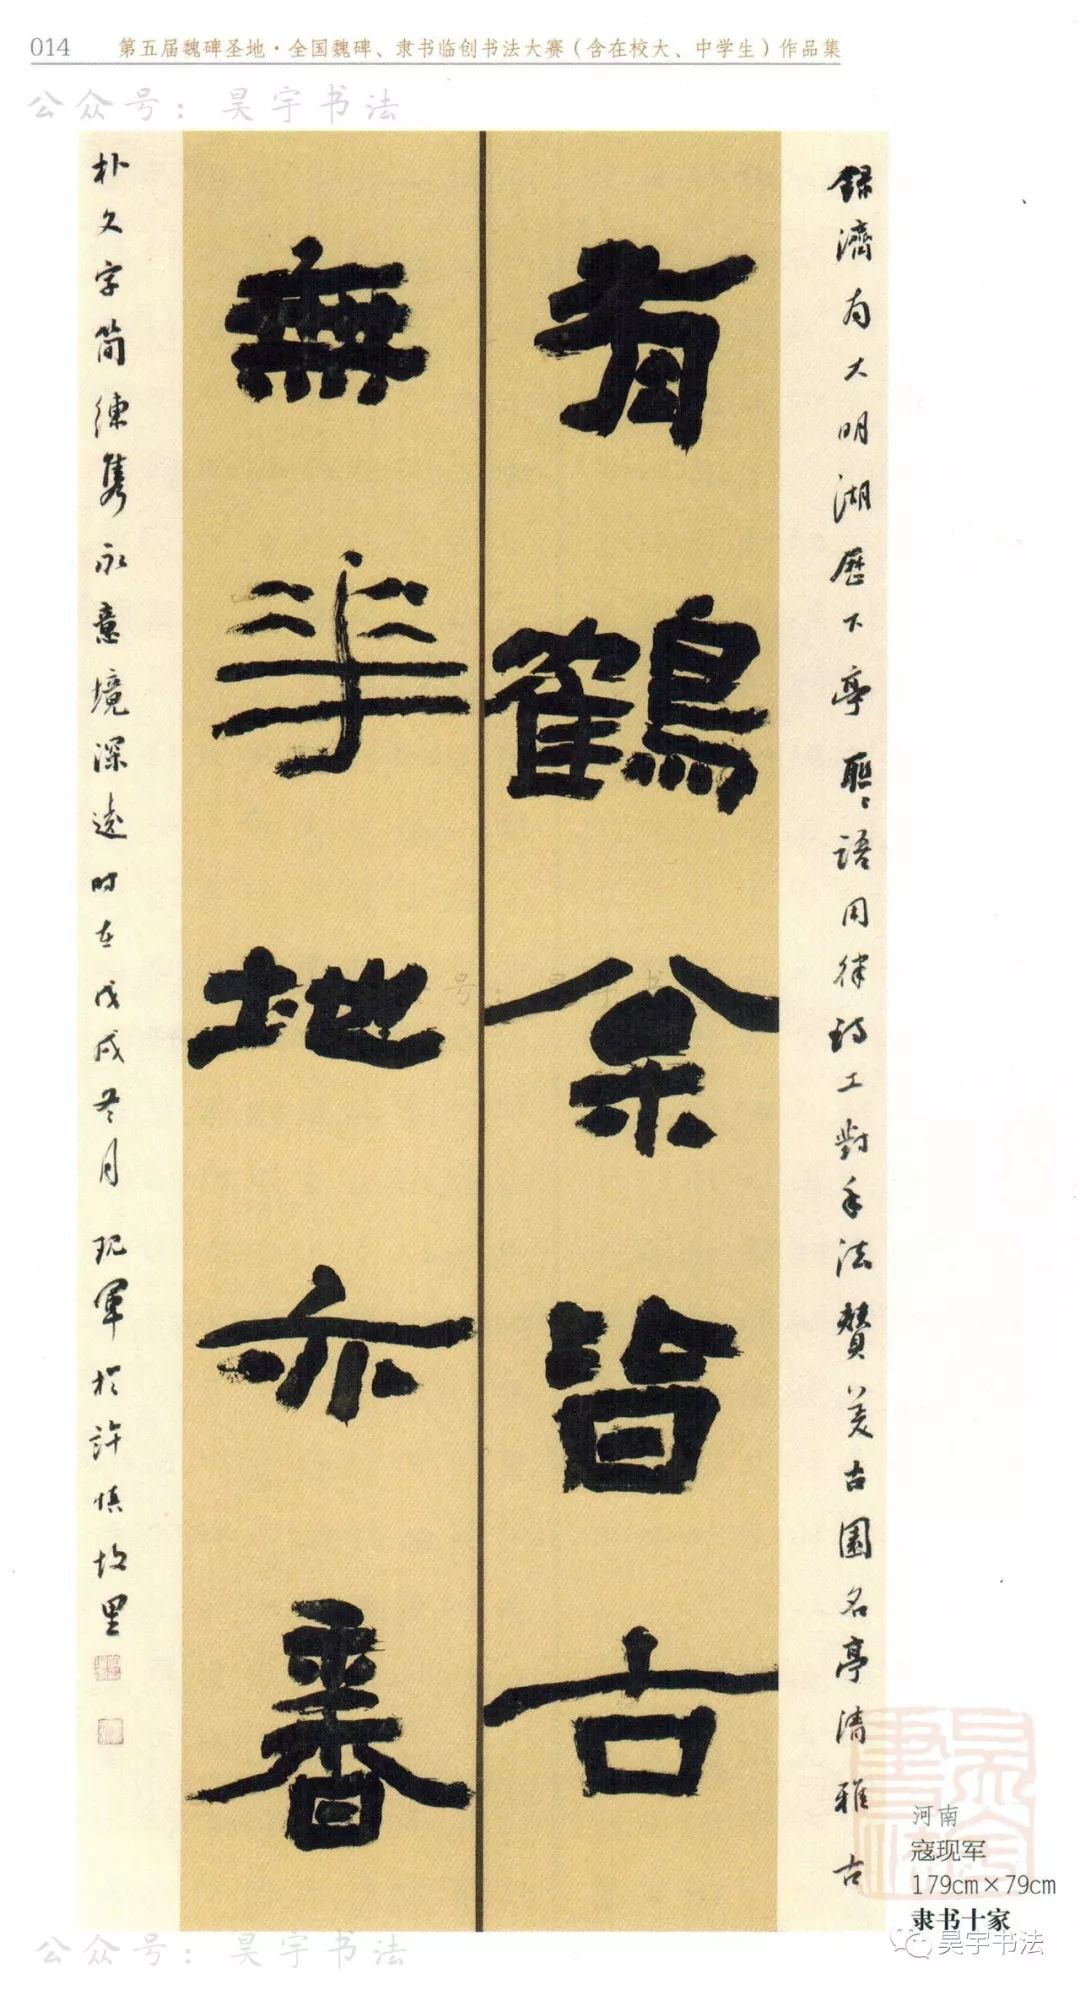 014 第五届魏碑圣地·全国魏碑、隶书临创书法大赛（含在校大、中学生）作品集
公众号：昊宇书法
錄濟南大明湖歷下亭聯〻語用律詩工對手法贊美古園名亭清雅古
有鶴枀皆古
無華地亦香
朴文字简練雋永意境深遠时在戊戌冬月 現軍於許慎故里
河南
寇现军
179cm×79cm
隶书十家
昊宇书法
公众号：昊宇书法